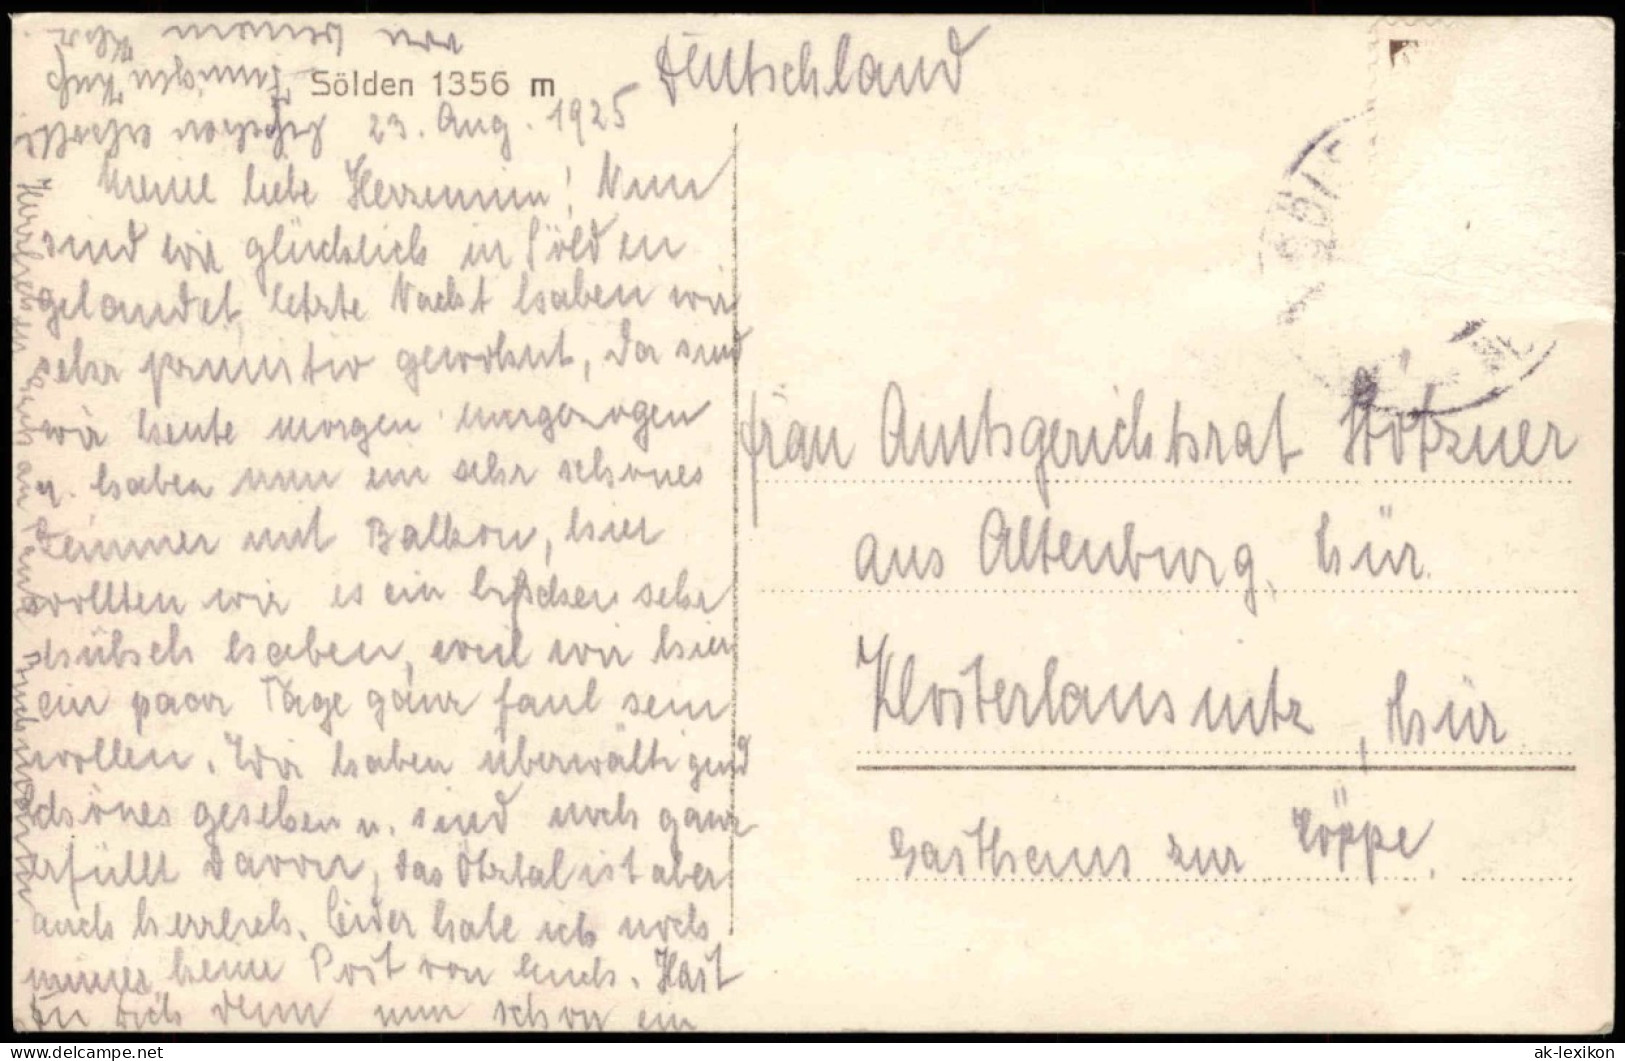 Sölden 1356 m
Deutschland
23. Aug. 1925
Meine liebe Herzemim! Nun
sind wir glücklich in Sölden
gelandet, letzte Nacht haben wir
sehr primitiv gewohnt, da sind
wir heute morgen umgezogen
u. haben nun ein sehr schönes
Zimmer mit Balkon, hier
wollten wir es ein bischen sehr
hübsch haben, weil wir hier
ein paar Tage ganz faul sein
wollen. Wir haben überwältigend
schönes gesehen u. sind noch ganz
erfüllt davon, das Ötztal ist aber
auch herrlich. Leider habe ich noch
immer keine Post von Euch. Hast
Du Dich denn nun schon ein
Frau Amtsgerichtsrat Stötzner
aus Altenburg, Thür.
Klosterlausnitz, Thür
Gasthaus zur Köppe.
ak-lexikon
www.delcampe.net